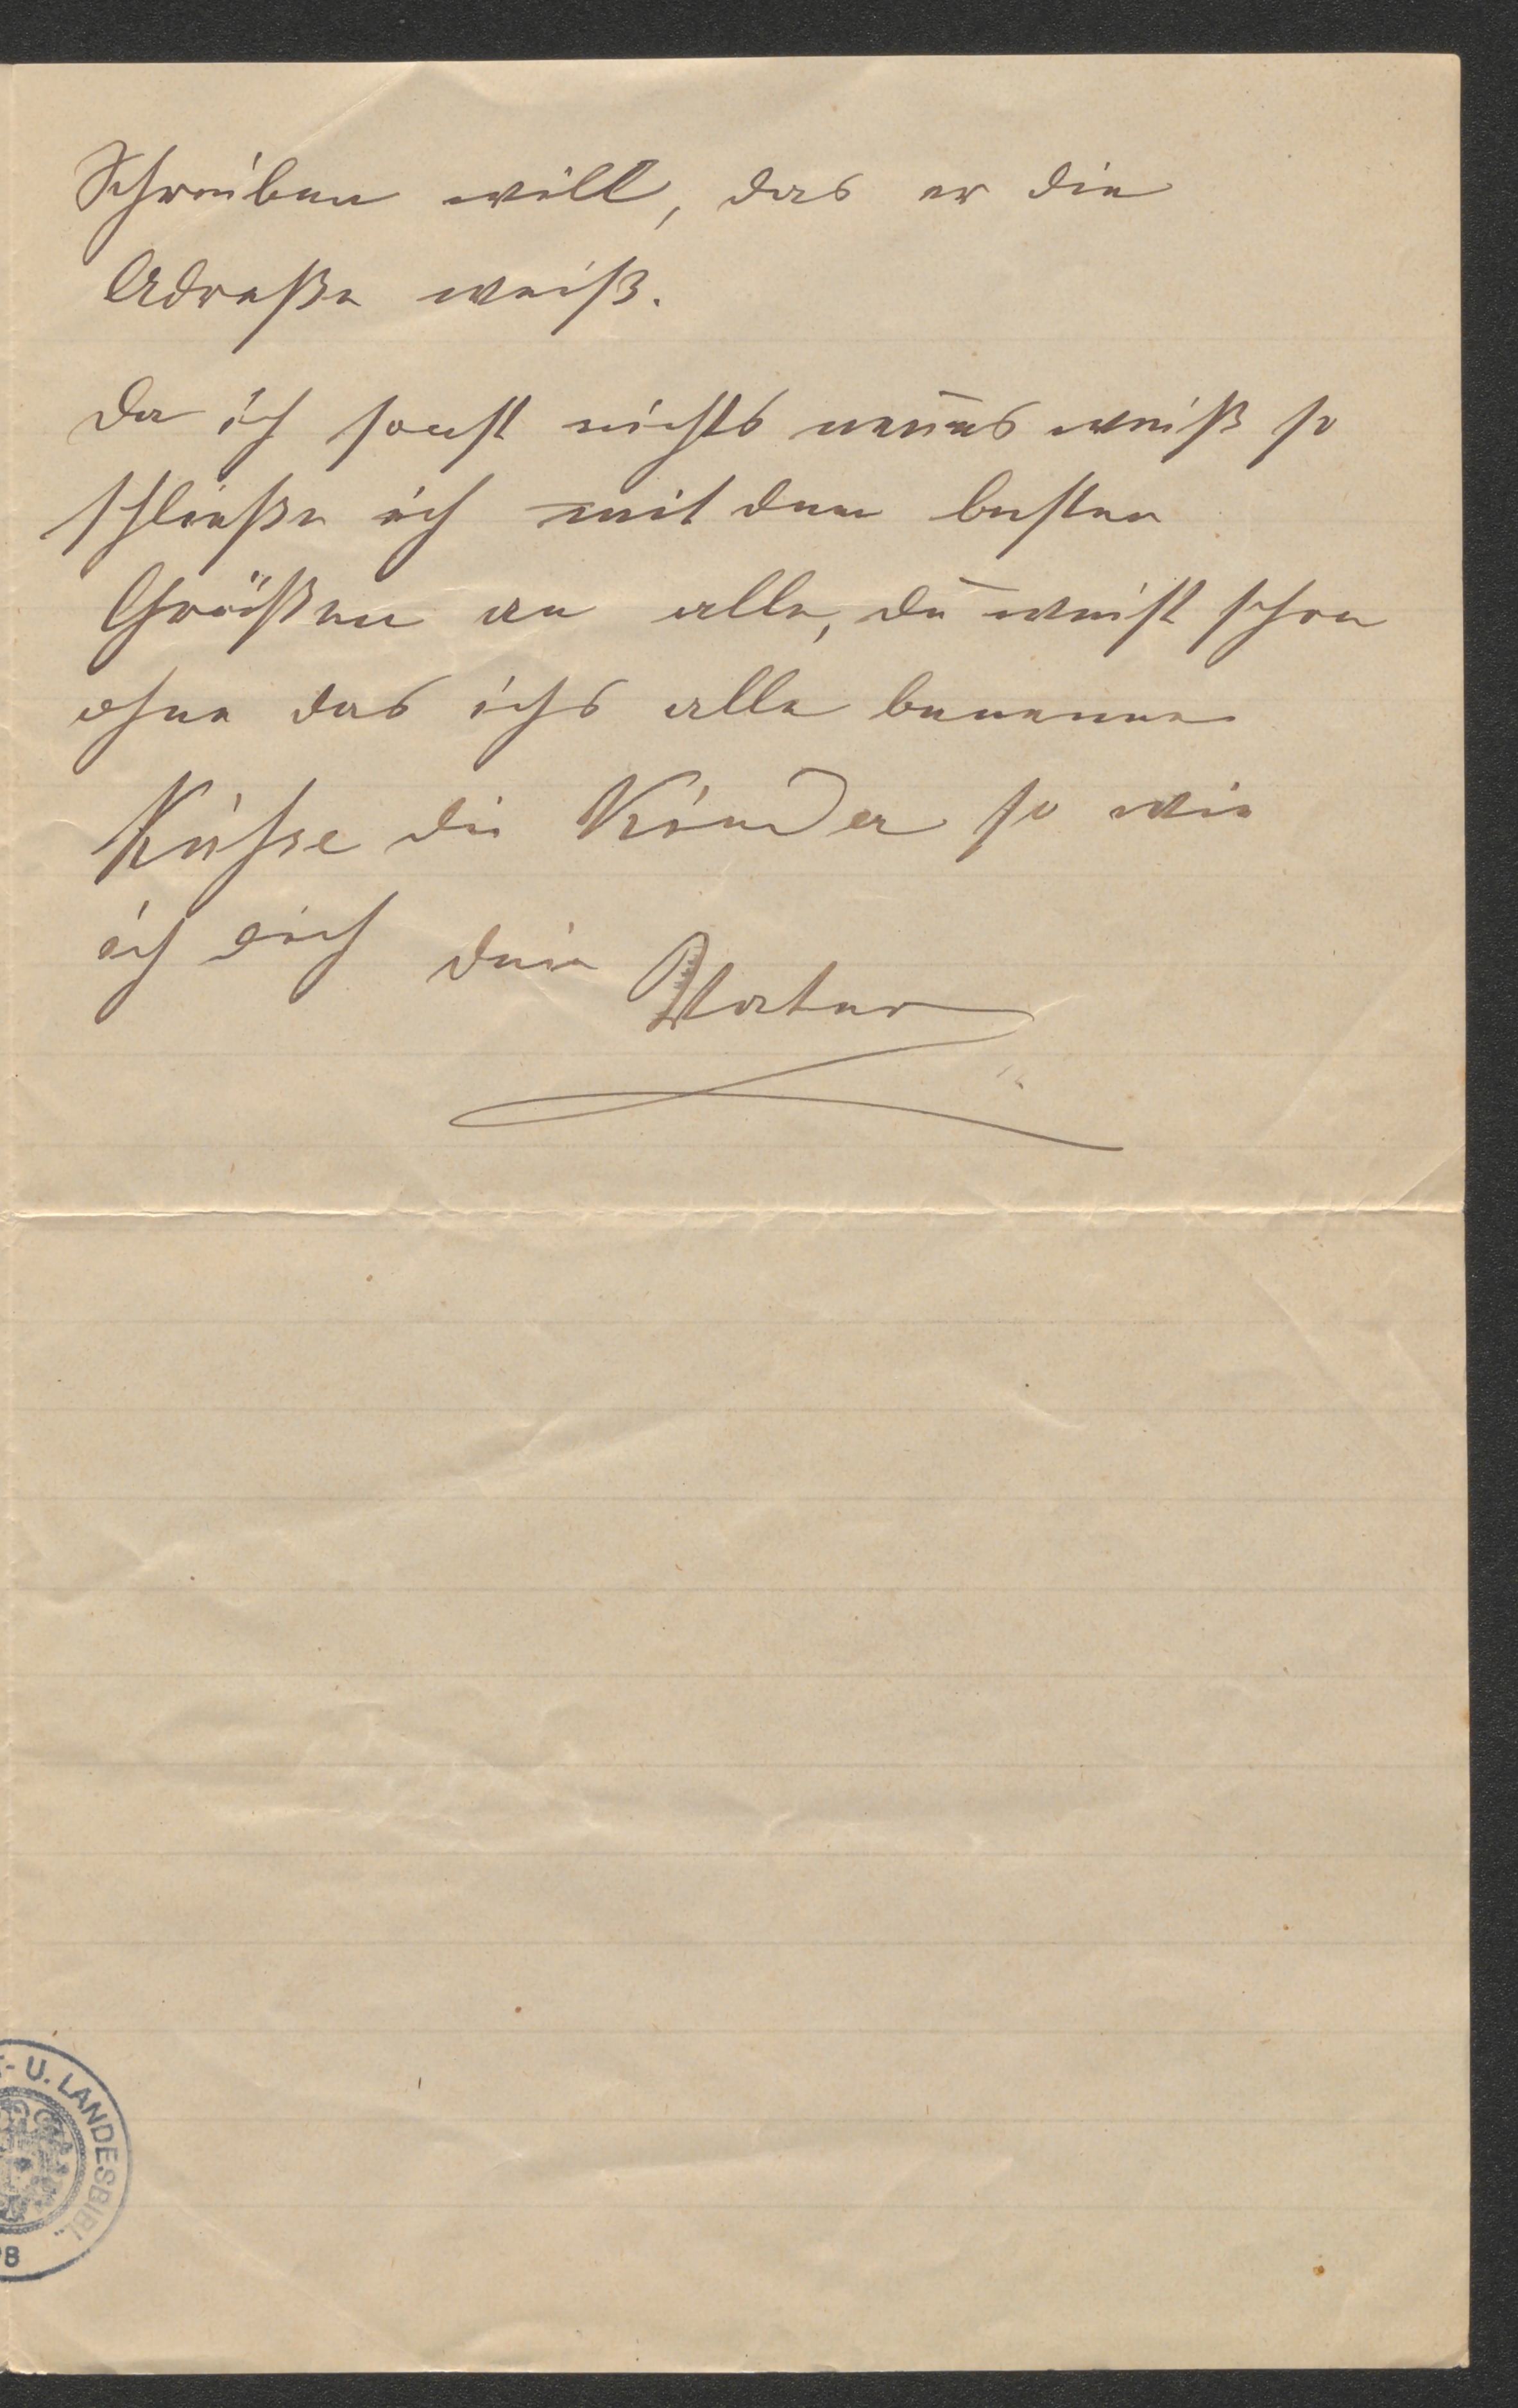 Schreiben will, das er die
Adreße weiß.
Da ich sonst nichts neues weiß so
schließe ich mit den besten
Grüßen an alle, du weist schon
ohne das ichs alle benenne
Küsse die Kinder so wie
ich dich dein Vater
U. LANDESBIBL.